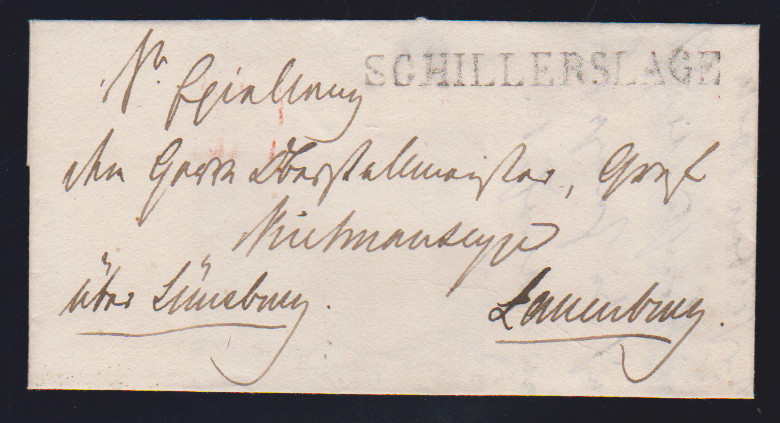 SCHILLERSLAGE
Sr. Excellenz
Herrn Oberstallmeister, Graf
Kielmansegge
über Lüneburg.
Lauenburg.